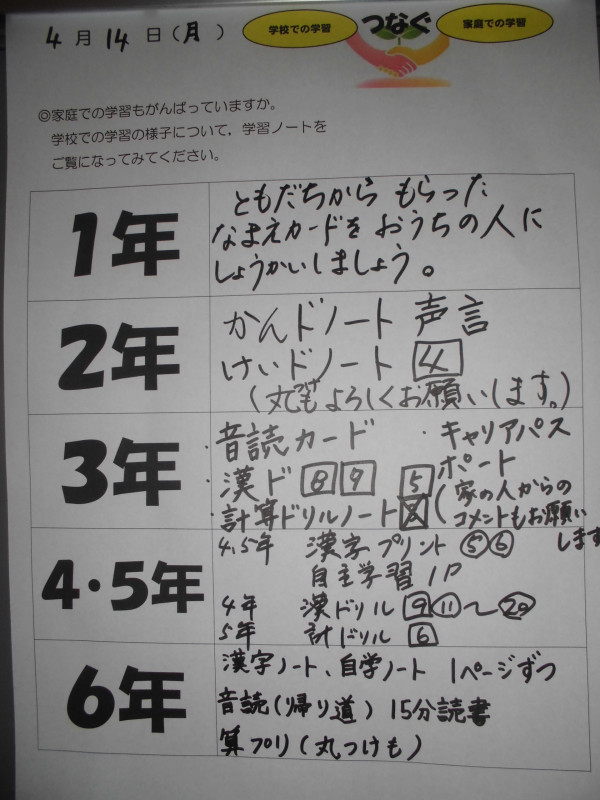 4月14日(月)
学校での学習
つなぐ
家庭での学習
◎家庭での学習もがんばっていますか。
学校での学習の様子について,学習ノートを
ご覧になってみてください。
1年
ともだちから もらった
なまえカードを おうちの人に
しょうかいしましょう。
2年
かんドノート 声言
けいドノート 4
(丸つけもよろしくお願いします。)
3年
・音読カード
・漢ド 8 9
・計算ドリルノート 5
・キャリアパス
ポート
(家の人からの
コメントもお願い
します
4・5年
4.5年 漢字プリント ⑤⑥
自主学習 1P
4年 漢ドリル 9 ⑪〜⑳
5年 計ドリル 6
6年
漢字ノート、自学ノート 1ページずつ
音読(帰り道) 15分読書
算プリ(丸つけも)